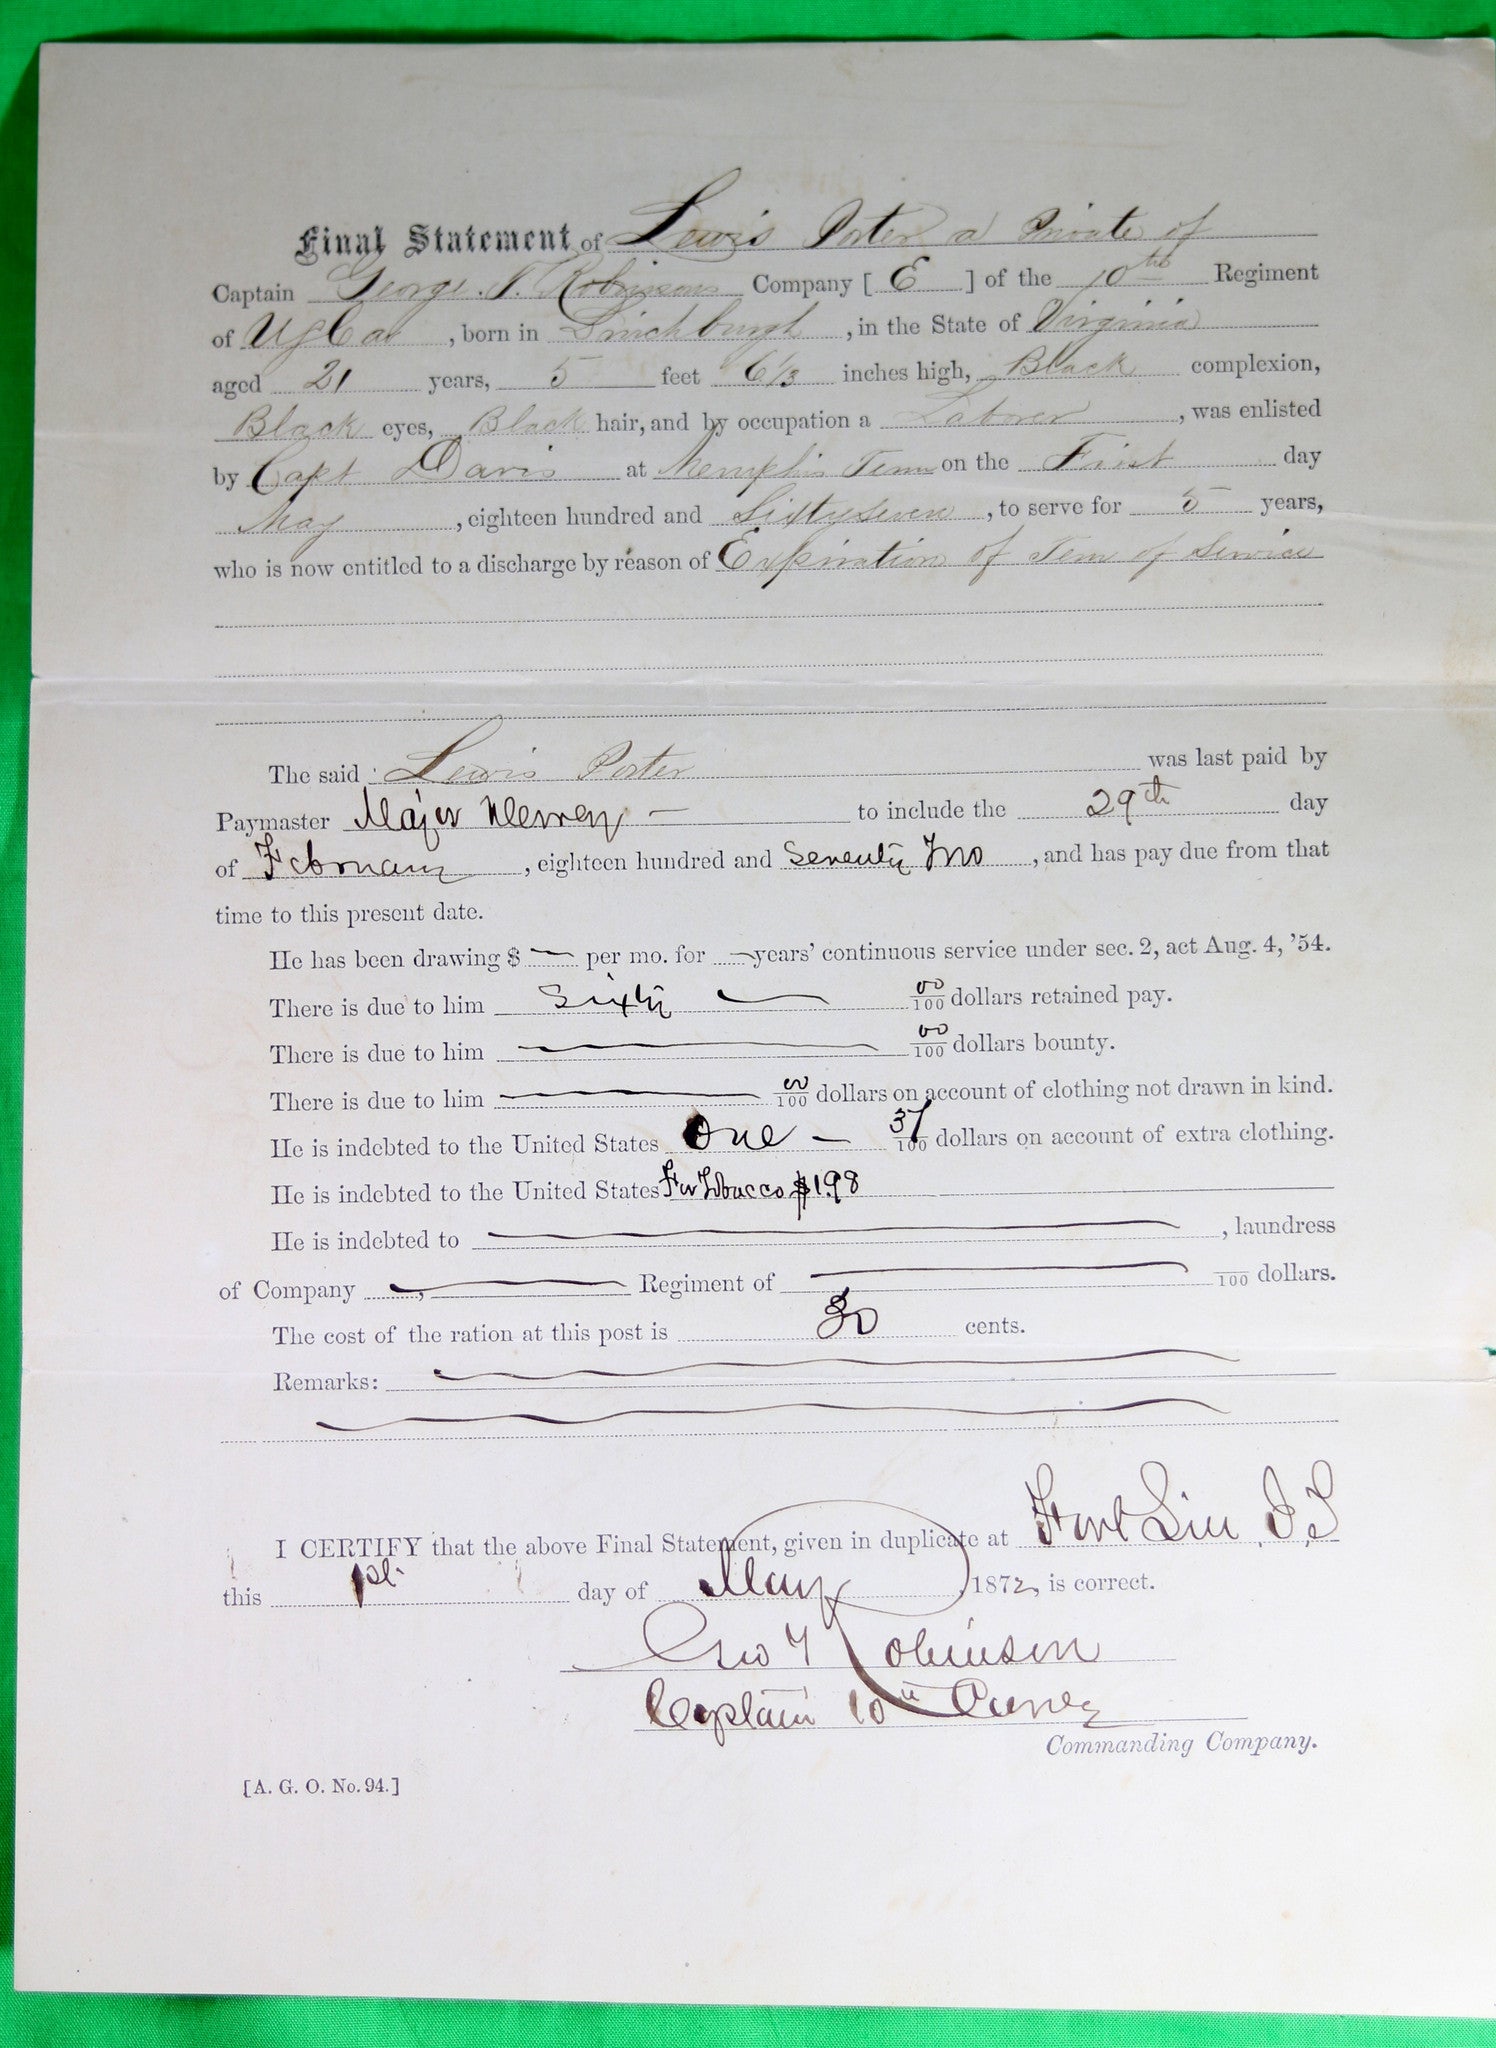 Final Statement of Lewis Porter a Private of
Captain George T. Robinson Company [ E ] of the 10th Regiment
of US Cav , born in Linchburgh , in the State of Virginia
aged 21 years, 5 feet 6 1/3 inches high, Black complexion,
Black eyes, Black hair, and by occupation a Laborer , was enlisted
by Capt Davis at Memphis Tenn on the First day
May , eighteen hundred and Sixtyseven , to serve for 5 years,
who is now entitled to a discharge by reason of Expiration of Term of Service
The said Lewis Porter was last paid by
Paymaster Major to include the 29th day
of February , eighteen hundred and Seventy Two , and has pay due from that
time to this present date.
He has been drawing $ — per mo. for — years' continuous service under sec. 2, act Aug. 4, '54.
There is due to him Sixty — 00/100 dollars retained pay.
There is due to him — 00/100 dollars bounty.
There is due to him — 00/100 dollars on account of clothing not drawn in kind.
He is indebted to the United States One — 37/100 dollars on account of extra clothing.
He is indebted to the United States For Tobacco $1.98
He is indebted to — , laundress
of Company —, — Regiment of — /100 dollars.
The cost of the ration at this post is 30 cents.
Remarks: —
I CERTIFY that the above Final Statement, given in duplicate at Fort Sill, I,T
this 1st. day of May , 1872, is correct.
Geo T Robinson
Captain 10th Cavy
Commanding Company.
[A. G. O. No. 94.]